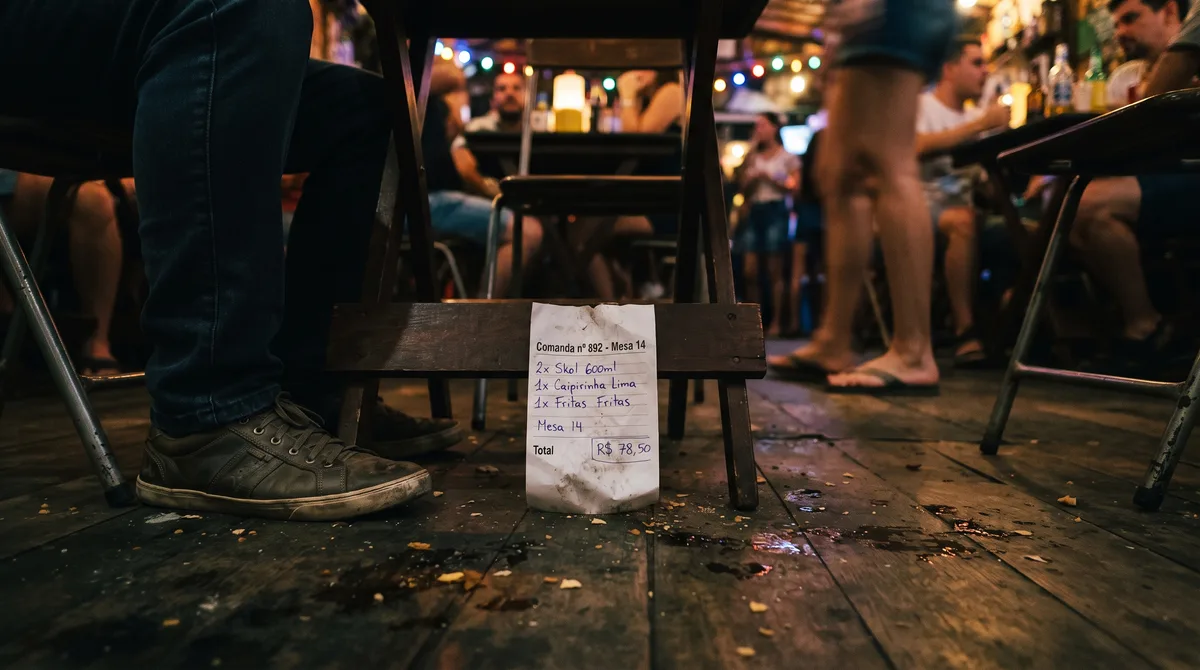 Comanda nº 892 - Mesa 14
2x Skol 600ml
1x Caipirinha Lima
1x Fritas Fritas
Mesa 14
Total R$ 78,50